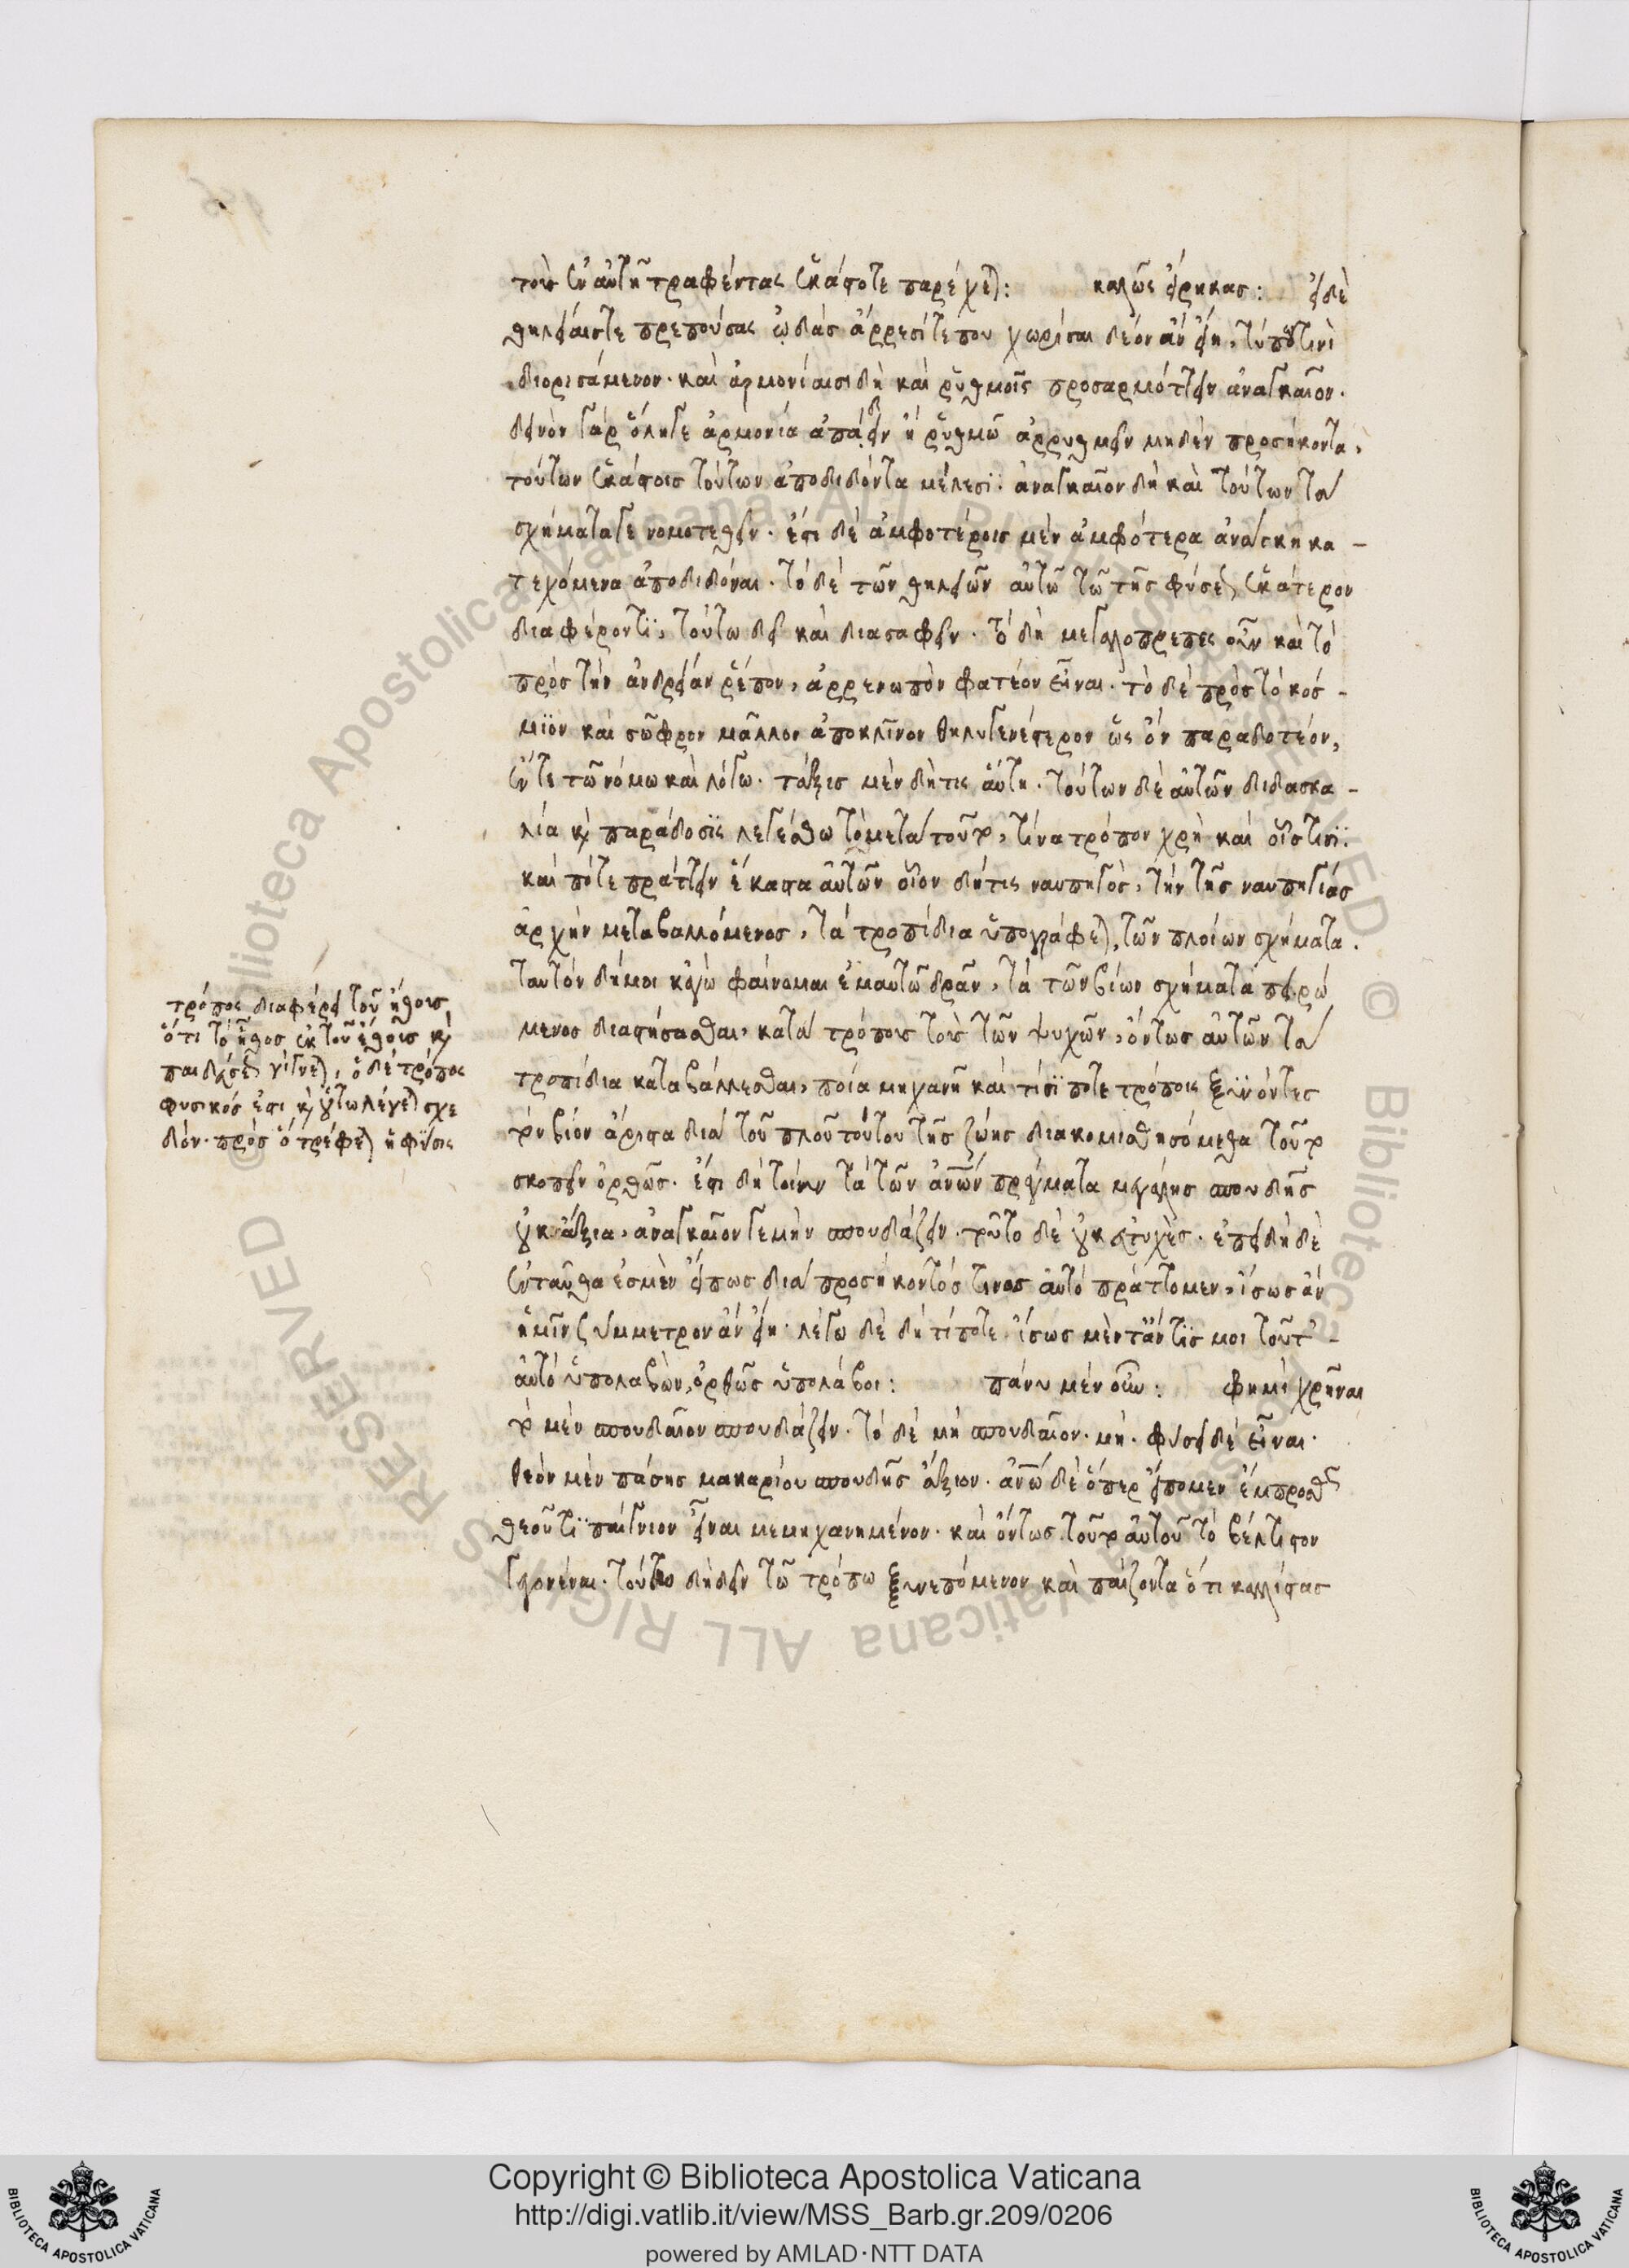 τοὺς ἐν αὐτῇ τραφέντας ἑκάστοτε παρέχεται: καλῶς εἴρηκας: εἰ δὲ
θηλείαις τε πρεπούσας ᾠδὰς ἄρρεσί τέ που χωρίσαι δέον ἂν εἴη, τύπῳ τινὶ
διορισάμενον· καὶ ἁρμονίαισι δὴ καὶ ῥυθμοῖς προσαρμόττειν ἀναγκαῖον·
δεινὸν γὰρ ὅλῃ γε ἁρμονίᾳ ἀπᾴδειν ἢ ῥυθμῷ ἀρρυθμεῖν μηδὲν προσήκοντα,
τούτων ἑκάστοις τούτων ἀποδιδόντα μέλεσι· ἀναγκαῖον δὴ καὶ τούτων τὰ
σχήματά γε νομοτεθεῖν· ἔστι δὲ ἀμφοτέροις μὲν ἀμφότερα ἀνάγκη κα-
τεχόμενα ἀποδιδόναι· τὸ δὲ τῶν θηλειῶν αὐτῷ τῷ τῆς φύσεως ἑκάτερον
διαφέροντι, τούτῳ δεῖ καὶ διασαφεῖν· τὸ δὴ μεγαλοπρεπὲς οὖν καὶ τὸ
πρὸς τὴν ἀνδρείαν ῥέπον, ἀρρενωπὸν φατέον εἶναι· τὸ δὲ πρὸς τὸ κόσ-
μιον καὶ σῶφρον μᾶλλον ἀποκλῖνον θηλυγενέστερον ὡς ὂν παραδοτέον,
ἔν τε τῷ νόμῳ καὶ λόγῳ· τάξις μὲν δή τις αὕτη· τούτων δὲ αὐτῶν διδασκα-
λία καὶ παράδοσις λεγέσθω τὸ μετὰ τοῦτο, τίνα τρόπον χρὴ καὶ οἷστισι·
καὶ πότε πράττειν ἕκαστα αὐτῶν οἷον δή τις ναυπηγὸς, τὴν τῆς ναυπηγίας
ἀρχὴν μεταβαλλόμενος, τὰ τροπίδια ὑπογράφεται, τῶν πλοίων σχήματα·
ταυτὸν δή μοι κἀγὼ φαίνομαι ἐμαυτῷ δρᾶν, τὰ τῶν βίων σχήματα πειρώ
μενος διαστήσασθαι, κατὰ τρόπους τοὺς τῶν ψυχῶν, ὄντως αὐτῶν τὰ
τροπίδια καταβάλλεσθαι, ποίᾳ μηχανῇ καὶ τίσι ποτὲ τρόποις ξυνόντες
τὸν βίον ἄριστα διὰ τοῦ πλοῦ τούτου τῆς ζωῆς διακομισθησόμεθα τοῦτο
σκοπεῖν ὀρθῶς· ἔστι δὴ τοίνυν τὰ τῶν ἀνων πράγματα μεγάλης σπουδῆς
οὐκ ἄξια, ἀναγκαῖόν γε μὴν σπουδάζειν· τοῦτο δὲ οὐκ εὐτυχὲς· ἐπειδὴ δὲ
ἐνταῦθα ἐσμὲν εἴ πως διὰ προσήκοντός τινος αὐτὸ πράττομεν, ἴσως ἂν
ἡμῖν ξύμμετρον ἂν εἴη· λέγω δὲ δὴ τί ποτε· ἴσως μέντἄν τίς μοι τοῦτ'-
αὐτὸ ὑπολαβὼν, ὀρθῶς ὑπολάβοι: πάνυ μὲν οὖν: φημὶ χρῆναι
τὸ μὲν σπουδαῖον σπουδάζειν· τὸ δὲ μὴ σπουδαῖον· μή· φύσει δὲ εἶναι·
θεὸν μὲν πάσης μακαρίου σπουδῆς ἄξιον· ἀνων δὲ ὅπερ εἴπομεν ἔμπροσθεν
θεοῦ τι παίγνιον εἶναι μεμηχανημένον· καὶ ὄντως τοῦτο αὐτοῦ τὸ βέλτιστον
γεγονέναι· τούτῳ δὴ δεῖν τῷ τρόπῳ ξυνεπόμενον καὶ παίζοντα ὅτι καλλίστας
τρόπος διαφέρει τοῦ ἤθους
ὅτι τὸ ἦθος ἐκ τοῦ ἔθους καὶ
παιδεύσεως γίγνεται, ὁ δὲ τρόπος
φυσικός ἐστι καὶ οὕτω λέγεται σχε
δόν· πρὸς ὃ τρέφεται ἡ φύσις
Copyright © Biblioteca Apostolica Vaticana
http://digi.vatlib.it/view/MSS_Barb.gr.209/0206
powered by AMLAD·NTT DATA
BIBLIOTECA APOSTOLICA VATICANA
BIBLIOTECA APOSTOLICA VATICANA